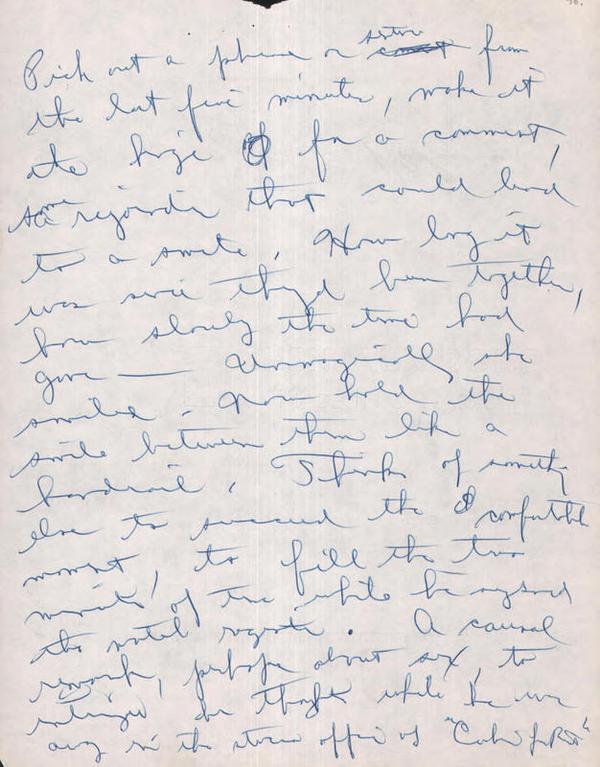 Pick out a phrase or from
the last five minutes, make it
for a comment,
some rejoinder that could lead
to a smile. How long it
was since they'd been together,
how slowly the time had
gone — she
smiled. Now hold the
smile between them like a
handrail. Think of something
else to succeed the comfortable
moment, to fill the two
minutes of time while he signed
the motel register. A causal
remark, perhaps about sex, to
her thoughts while he was
away in the office of